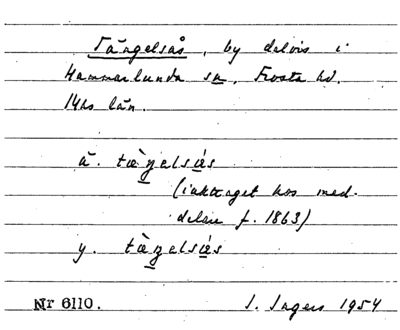 Tängelsås, by delvis i
Hammarlunda sn, Frosta hd.
Mhs län.
ä. tæ̀ŋelsás
(iakttaget hos med-
delare f. 1863)
y. tæ̀ŋelsás
Nr 6110. I. Ingers 1954